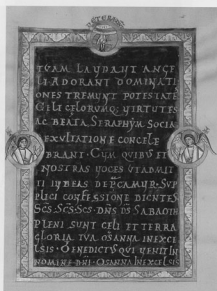 TUAM LAUDANT ANGE
LI ADORANT DOMINATI
ONES TREMUNT POTESTATE
CELI CELORUMQ; VIRTUTES
AC BEATA SERAPHYM SOCIA
EXULTATIONE CONCELE
BRANT. CUM QUIBUS ET
NOSTRAS VOCES UT ADMIT
TI IUBEAS DEPCAMUR. SUP
PLICI CONFESSIONE DICENTES
SCS. SCS. SCS. DNS DS SABAOTH
PLENI SUNT CELI ET TERRA
GLORIA TUA. OSANNA INEXCEL
SIS. BENEDICTUS QUI VENIT IN
NOMINE DNI. OSANNA INEXCELSIS